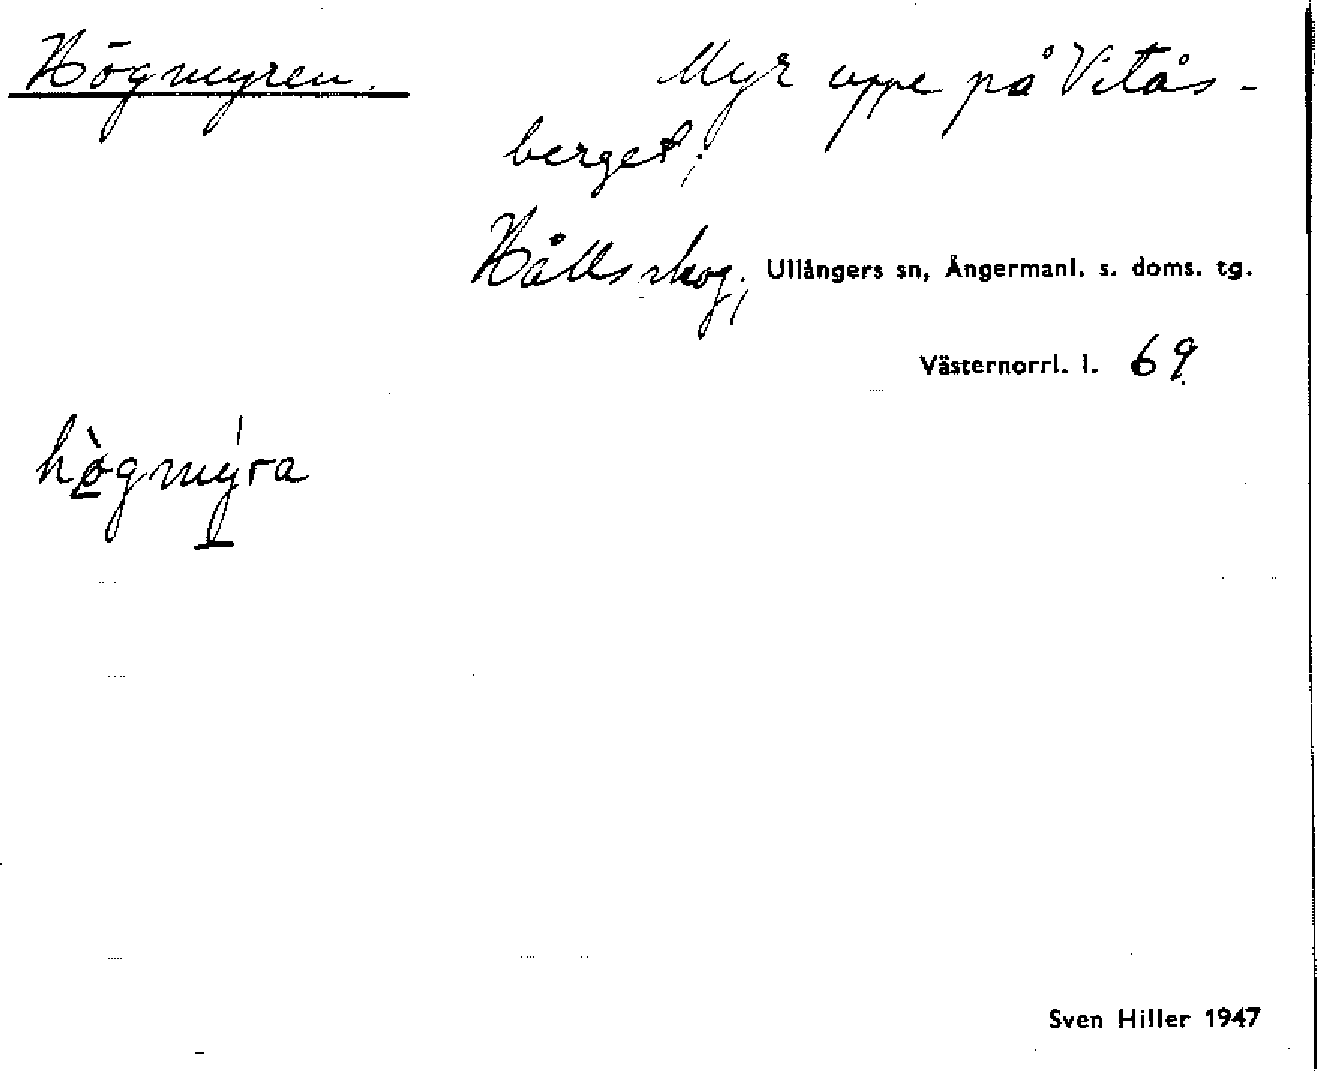 Högmyren. Myr uppe på Vitås-
berget;
Hållsskog; Ullångers sn, Ångermanl. s. doms. tg.
Västernorrl. l. 69
hògmýra
Sven Hiller 1947